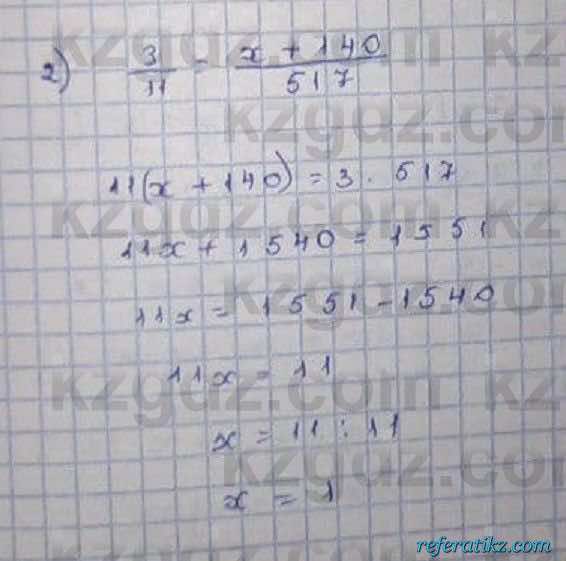 2) 3/11 = x + 140/517
11(x + 140) = 3 · 517
11x + 1540 = 1551
11x = 1551 - 1540
11x = 11
x = 11 : 11
x = 1
kzgdz.com
referatikz.com